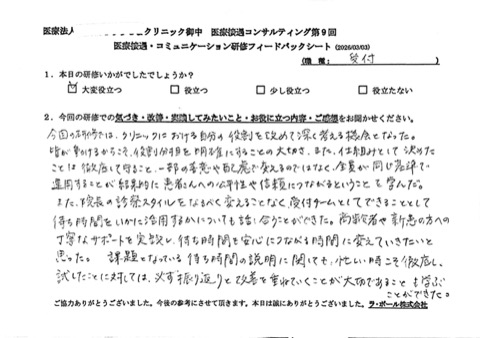 医療法人 クリニック御中 医療接遇コンサルティング第9回
医療接遇・コミュニケーション研修フィードバックシート (2026/03/03)
(職種: 受付 )
1.本日の研修いかがでしたでしょうか?
大変役立つ 役立つ 少し役立つ 役立たない
2.今回の研修での気づき・改善・実践してみたいこと・お役に立つ内容・ご感想をお聞かせください。
今回の研修では、クリニックにおける自分の役割を改めて深く考える機会となった。
皆が動けるからこそ、役割分担を明確にすることの大切さ、また、仕組みとして決めた
ことは徹底して守ること、一部の善意や配慮で変えるのではなく、全員が同じ基準で
運用することが結果的に患者さんへの公平性や信頼につながるということを学んだ。
また、院長の診察スタイルをなるべく変えることなく、受付チームとしてできることとして
待ち時間をいかに活用するかについても話し合うことができた。高齢者や新患の方への
丁寧なサポートを実践し、待ち時間を安心につながる時間に変えていきたいと
思った。課題となっている待ち時間の説明に関しても、忙しい時こそ徹底し、
試したことに対しては、必ず振り返りと改善を重ねていくことが大切であることも学ぶ
ことができた。
ご協力ありがとうございました。今後の参考にさせて頂きます。本日は誠にありがとうございました。ラ・ポール株式会社